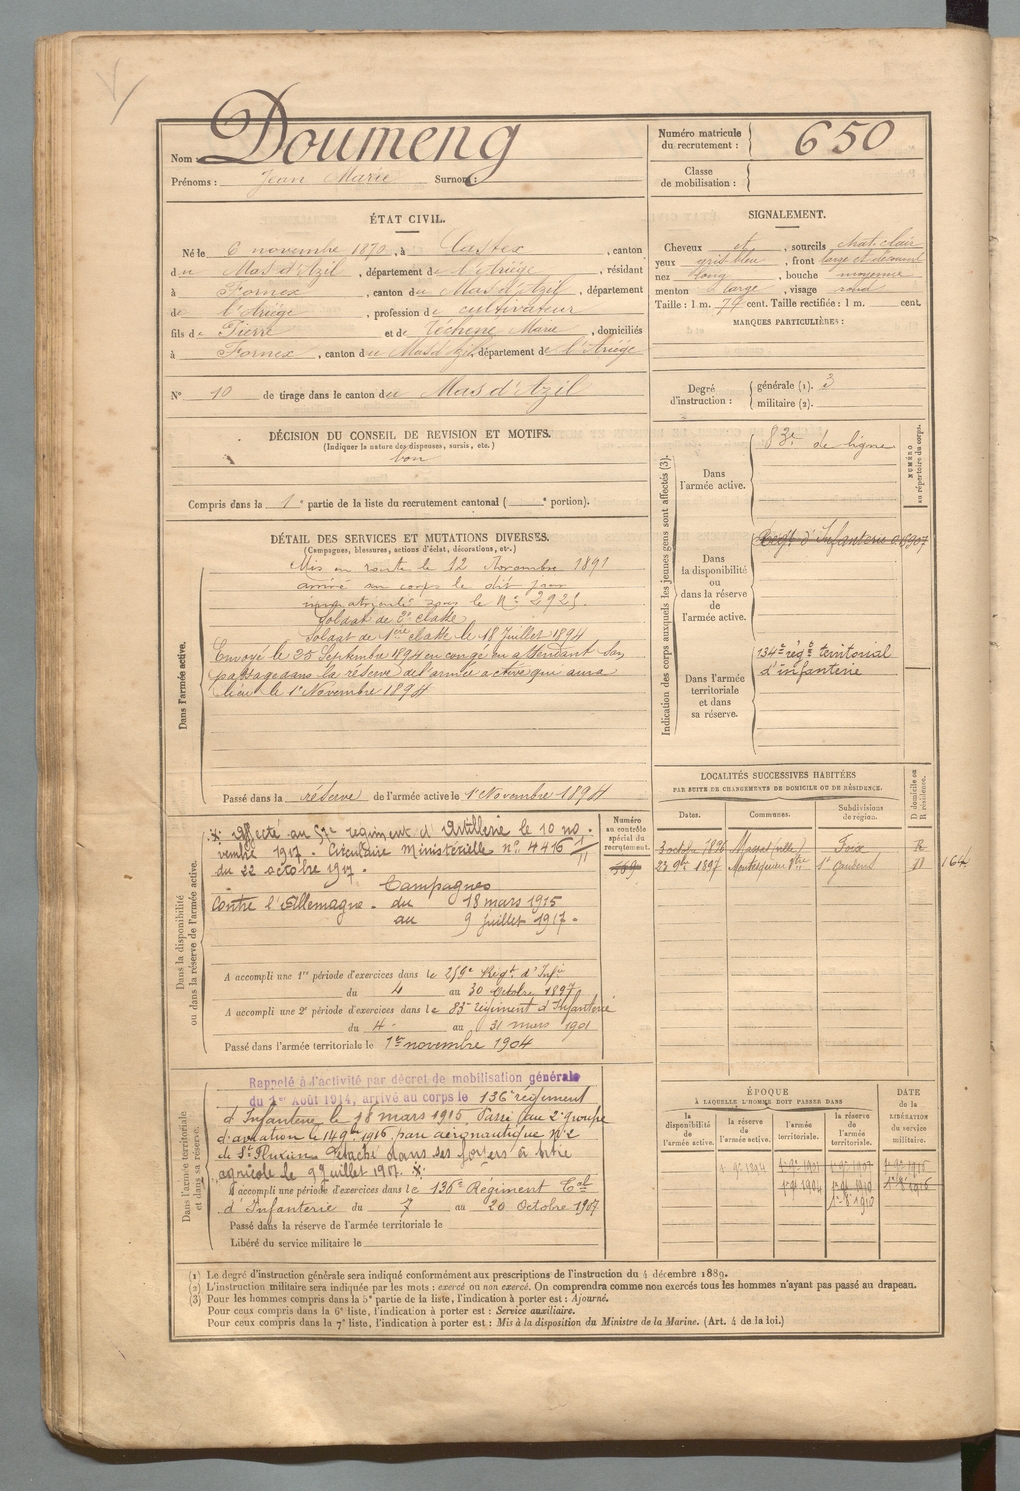 Nom : Doumeng
Prénoms : Jean Marie Surnom :
Numéro matricule
du recrutement : 650
Classe
de mobilisation :
ÉTAT CIVIL.
Né le 6 novembre 1870, à Castex, canton
du Mas d'Azil, département de l'Ariége, résidant
à Fornex, canton du Mas d'Azil, département
de l'Ariége, profession de cultivateur
fils de Pierre et de Téchene Marie, domiciliés
à Fornex, canton du Mas d'Azil, département de l'Ariége
N° 10 de tirage dans le canton du Mas d'Azil
SIGNALEMENT.
Cheveux et, sourcils chat. clair
yeux gris bleu, front large et découvert
nez long, bouche moyenne
menton large, visage rond
Taille : 1 m. 74 cent. Taille rectifiée : 1 m. cent.
MARQUES PARTICULIÈRES :
Degré
d'instruction : générale (1). 3
militaire (2).
DÉCISION DU CONSEIL DE REVISION ET MOTIFS.
(Indiquer la nature des dispenses, sursis, etc.)
bon
Compris dans la 1e partie de la liste du recrutement cantonal ( e portion).
DÉTAIL DES SERVICES ET MUTATIONS DIVERSES.
(Campagnes, blessures, actions d'éclat, décorations, etc.)
Dans l'armée active.
Mis en route le 12 Novembre 1891
arrivé au corps le dit jour
immatriculé sous le N° 2925.
Soldat de 2e classe
Soldat de 1ère classe le 18 Juillet 1894
Envoyé le 25 Septembre 1894 en congé en attendant son
passage dans la réserve de l'armée active qui aura
lieu le 1er Novembre 1894
Passé dans la réserve de l'armée active le 1er Novembre 1894
Indication des corps auxquels les jeunes gens sont affectés (3).
NUMÉRO
au répertoire du corps.
Dans
l'armée active.
83e de ligne
Dans
la disponibilité
ou
dans la réserve
de
l'armée active.
Régt d'Infanterie
Dans l'armée
territoriale
et dans
sa réserve.
134e rég t territorial
d'infanterie
Dans la disponibilité
ou dans la réserve de l'armée active.
Affecté au 57e régiment d'Artillerie le 10 no-
vembre 1917. Circulaire Ministérielle n° 4416 1/11
du 22 octobre 1917.
Campagnes
Contre l'Allemagne. du 18 mars 1915
au 9 juillet 1917.
A accompli une 1re période d'exercices dans le 259e Régt d'Infie
du 4 au 30 Octobre 1897
A accompli une 2e période d'exercices dans le 83e régiment d'Infanterie
du 4 au 31 mars 1901
Passé dans l'armée territoriale le 1er novembre 1904
Numéro
au contrôle
spécial du
recrutement.
569
LOCALITÉS SUCCESSIVES HABITÉES
PAR SUITE DE CHANGEMENTS DE DOMICILE OU DE RÉSIDENCE.
D domicile ou
R résidence.
Dates. Communes. Subdivisions
de région.
3 octobre 1896 Massat (ville) Foix R
23 9bre 1897 Montesquieu Vtre St Gaudens D 164
Dans l'armée territoriale
et dans sa réserve.
Rappelé à l'activité par décret de mobilisation générale
du 1er Août 1914, arrivé au corps le 136e régiment
d'Infanterie le 18 mars 1915. Passé au 2e groupe
d'aviation le 14 9bre 1916, parc aéronautique N° 2
de St Détaché dans ses foyers à titre
agricole le 9 Juillet 1917.
A accompli une période d'exercices dans le 136e Régiment Tal
d'Infanterie du 7 au 20 Octobre 1907
Passé dans la réserve de l'armée territoriale le
Libéré du service militaire le
ÉPOQUE
À LAQUELLE L'HOMME DOIT PASSER DANS
DATE
de la
LIBÉRATION
du service
militaire.
la
disponibilité
de l'armée
active.
la réserve
de
l'armée active.
l'armée
territoriale.
la réserve
de
l'armée
territoriale.
(1) Le degré d'instruction générale sera indiqué conformément aux prescriptions de l'instruction du 4 décembre 1889.
(2) L'instruction militaire sera indiquée par les mots : exercé ou non exercé. On comprendra comme non exercés tous les hommes n'ayant pas passé au drapeau.
(3) Pour les hommes compris dans la 5e partie de la liste, l'indication à porter est : Ajourné.
Pour ceux compris dans la 6e liste, l'indication à porter est : Service auxiliaire.
Pour ceux compris dans la 7e liste, l'indication à porter est : Mis à la disposition du Ministre de la Marine. (Art. 4 de la loi.)